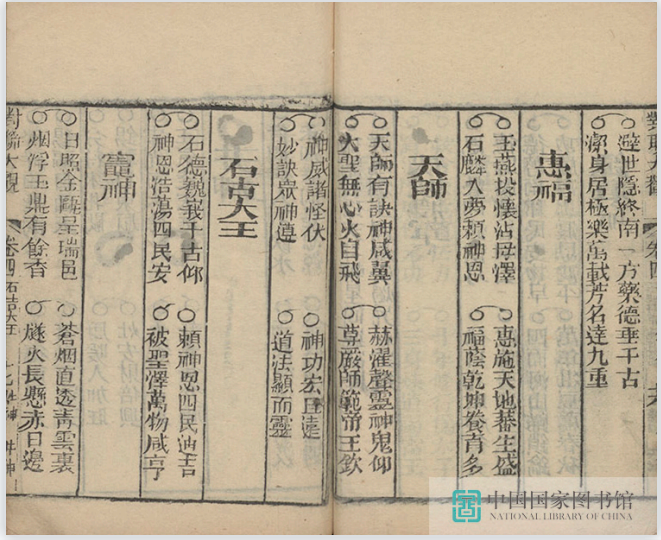 避世隱終南一方藥德垂千古
潔身居極樂萬載芳名達九重
惠福
玉燕投懷沾母澤
石麟入夢賴神恩
惠施天地蕃生盛
福蔭乾坤養育多
天師
天師有訣神咸翼
大聖無心火自飛
赫濯聲靈神鬼仰
尊嚴師範帝王欽
神威諸怪伏
妙訣眾神遵
神功宏且遠
道法顯而靈
石古大王
石德巍峩千古仰
神恩浩蕩四民安
賴神恩四民迪吉
被聖澤萬物咸亨
竈神
日照金甌呈瑞色
烟浮玉鼎有餘香
蒼烟直透青雲裏
燧火長懸赤日邊
對聯大觀
卷四
石古大王
社神 井神
中国国家图书馆
NATIONAL LIBRARY OF CHINA